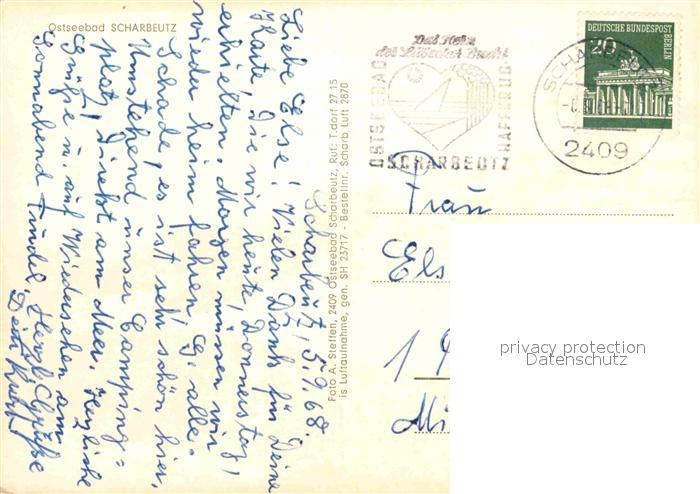 Ostseebad SCHARBEUTZ
Scharbeutz, 5.9.68.
Liebe Else! Vielen Dank für Deine
Karte. Die wir heute, Donnerstag,
erhielten. Morgen müssen wir
wieder heim fahren. G. alle.
Schade, es ist sehr schön hier,
Umstehend unser Camping=
platz, Direkt am Meer. Herzliche
Grüße u. auf Wiedersehen am
Sonnabend Trudel. Herzl. Grüße
Dein
Foto A. Steffen, 2409 Ostseebad Scharbeutz, Ruf: T.dorf 27 15
is Luftaufnahme, gen. SH 23717 - Bestellnr. Scharb Luft 2870
Das Herz
der Lübecker Bucht
OSTSEEBAD
SCHARBEUTZ
HAFFKRUG
DEUTSCHE BUNDESPOST
BERLIN
20
2409
Frau
Els
1
Mi
privacy protection
Datenschutz